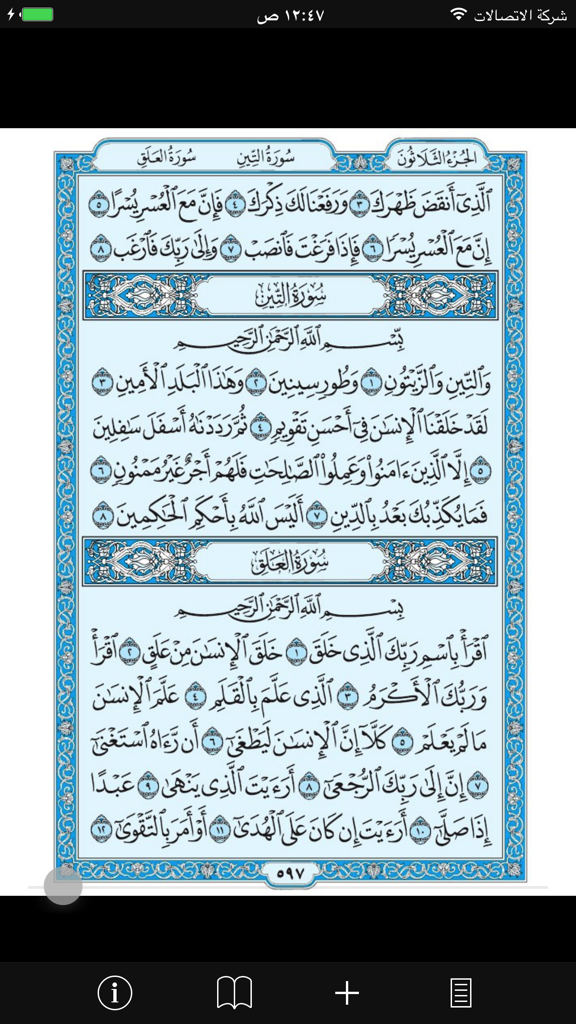 شركة الاتصالات ١٢:٤٧ ص
الجزء الثلاثون سورة التين سورة العلق
ٱلَّذِىٓ أَنقَضَ ظَهْرَكَ ٣ وَرَفَعْنَا لَكَ ذِكْرَكَ ٤ فَإِنَّ مَعَ ٱلْعُسْرِ يُسْرًا ٥
إِنَّ مَعَ ٱلْعُسْرِ يُسْرًا ٦ فَإِذَا فَرَغْتَ فَٱنصَبْ ٧ وَإِلَىٰ رَبِّكَ فَٱرْغَب ٨
سُورَةُ التِّينِ
بِسْمِ ٱللَّهِ ٱلرَّحْمَٰنِ ٱلرَّحِيمِ
وَٱلتِّينِ وَٱلزَّيْتُونِ ١ وَطُورِ سِينِينَ ٢ وَهَٰذَا ٱلْبَلَدِ ٱلْأَمِينِ ٣
لَقَدْ خَلَقْنَا ٱلْإِنسَٰنَ فِىٓ أَحْسَنِ تَقْوِيمٍ ٤ ثُمَّ رَدَدْنَٰهُ أَسْفَلَ سَٰفِلِينَ
٥ إِلَّا ٱلَّذِينَ ءَامَنُوا۟ وَعَمِلُوا۟ ٱلصَّٰلِحَٰتِ فَلَهُمْ أَجْرٌ غَيْرُ مَمْنُونٍ ٦
فَمَا يُكَذِّبُكَ بَعْدُ بِٱلدِّينِ ٧ أَلَيْسَ ٱللَّهُ بِأَحْكَمِ ٱلْحَٰكِمِينَ ٨
سُورَةُ العَلَقِ
بِسْمِ ٱللَّهِ ٱلرَّحْمَٰنِ ٱلرَّحِيمِ
ٱقْرَأْ بِٱسْمِ رَبِّكَ ٱلَّذِى خَلَقَ ١ خَلَقَ ٱلْإِنسَٰنَ مِنْ عَلَقٍ ٢ ٱقْرَأْ
وَرَبُّكَ ٱلْأَكْرَمُ ٣ ٱلَّذِى عَلَّمَ بِٱلْقَلَمِ ٤ عَلَّمَ ٱلْإِنسَٰنَ
مَا لَمْ يَعْلَمْ ٥ كَلَّآ إِنَّ ٱلْإِنسَٰنَ لَيَطْغَىٰٓ ٦ أَن رَّءَاهُ ٱسْتَغْنَىٰٓ
٧ إِنَّ إِلَىٰ رَبِّكَ ٱلرُّجْعَىٰٓ ٨ أَرَءَيْتَ ٱلَّذِى يَنْهَىٰ ٩ عَبْدًا
إِذَا صَلَّىٰٓ ١٠ أَرَءَيْتَ إِن كَانَ عَلَى ٱلْهُدَىٰٓ ١١ أَوْ أَمَرَ بِٱلتَّقْوَىٰٓ ١٢
٥٩٧